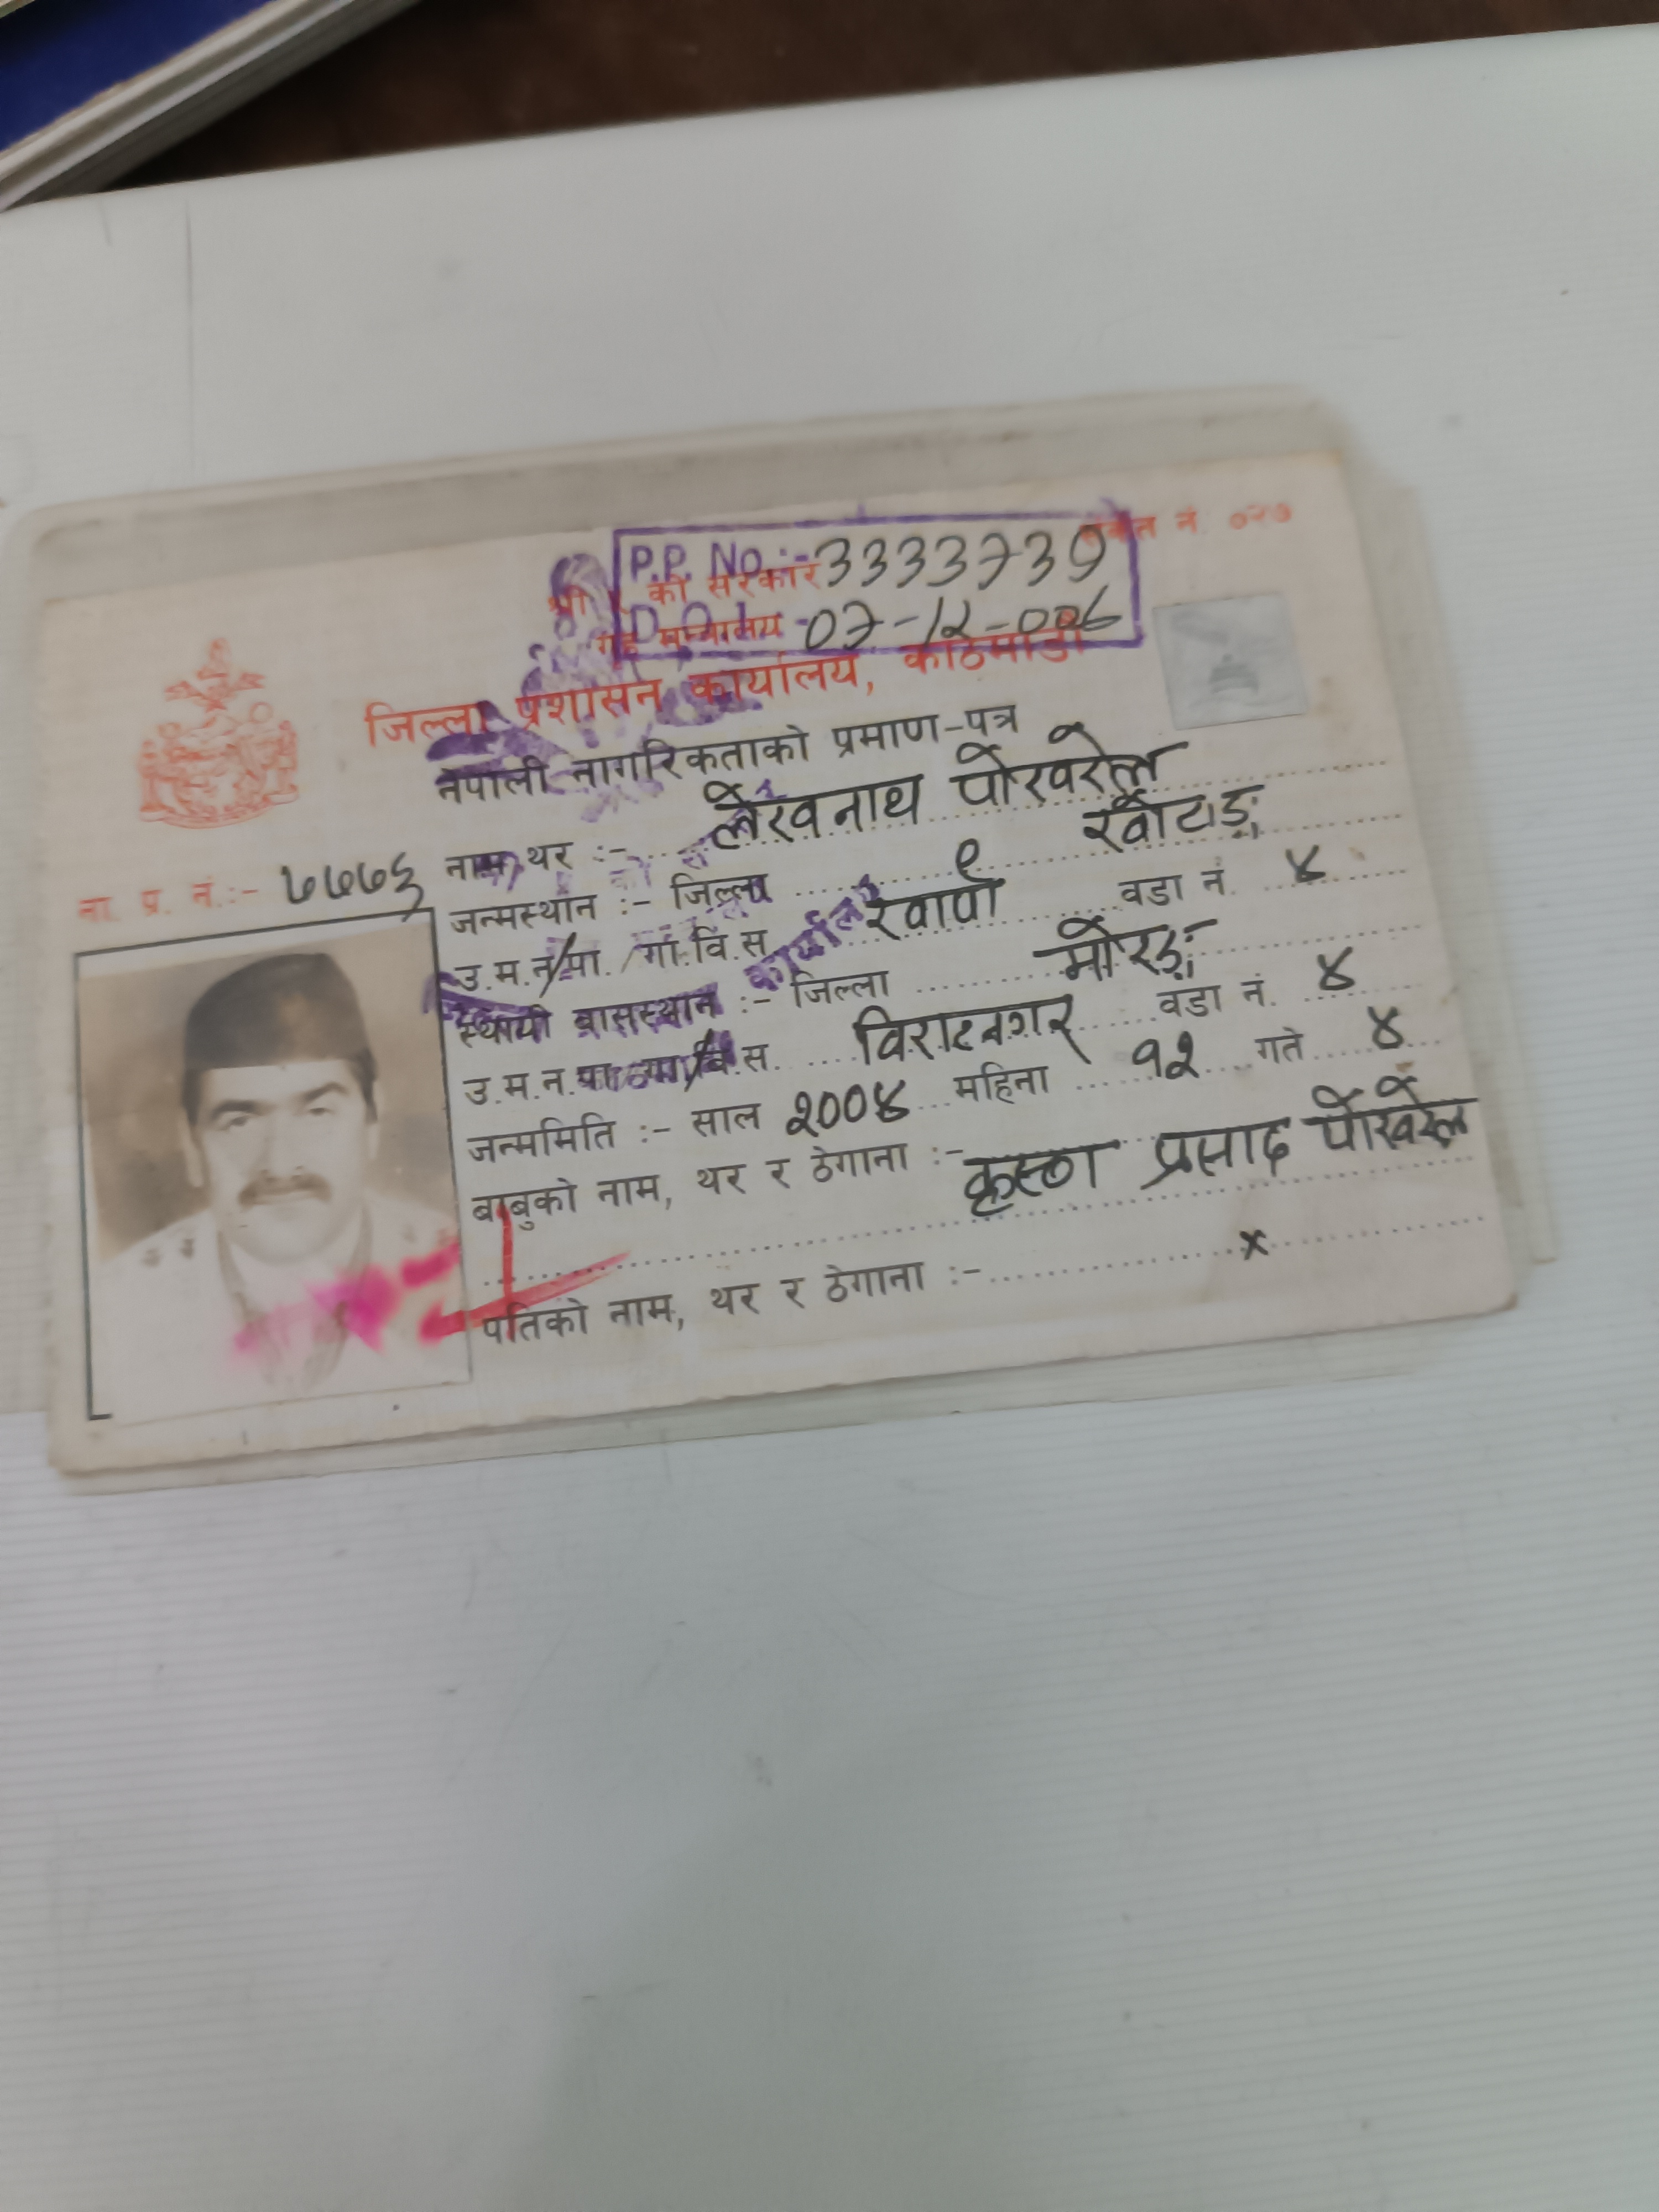 संकेत नं. ०२७
P.P. No.:- 3333739
श्री ५ को सरकार
गृह मन्त्रालय
07-12-006
जिल्ला प्रशासन कार्यालय, काठमाडौं
नेपाली नागरिकताको प्रमाण-पत्र
ना. प्र. नं.:- ७७७६
नाम, थर :- लेखनाथ पोखरेल
जन्मस्थान :- जिल्ला खोटाङ
उ.म.न.पा./गा.वि.स. खार्पा ९ वडा नं. ४
स्थायी वासस्थान :- जिल्ला मोरङ
उ.म.न.पा./गा.वि.स. विराटनगर वडा नं. ४
जन्ममिति :- साल २००४ महिना १२ गते ४
बाबुको नाम, थर र ठेगाना :- कृष्ण प्रसाद पोखरेल
पतिको नाम, थर र ठेगाना :- x